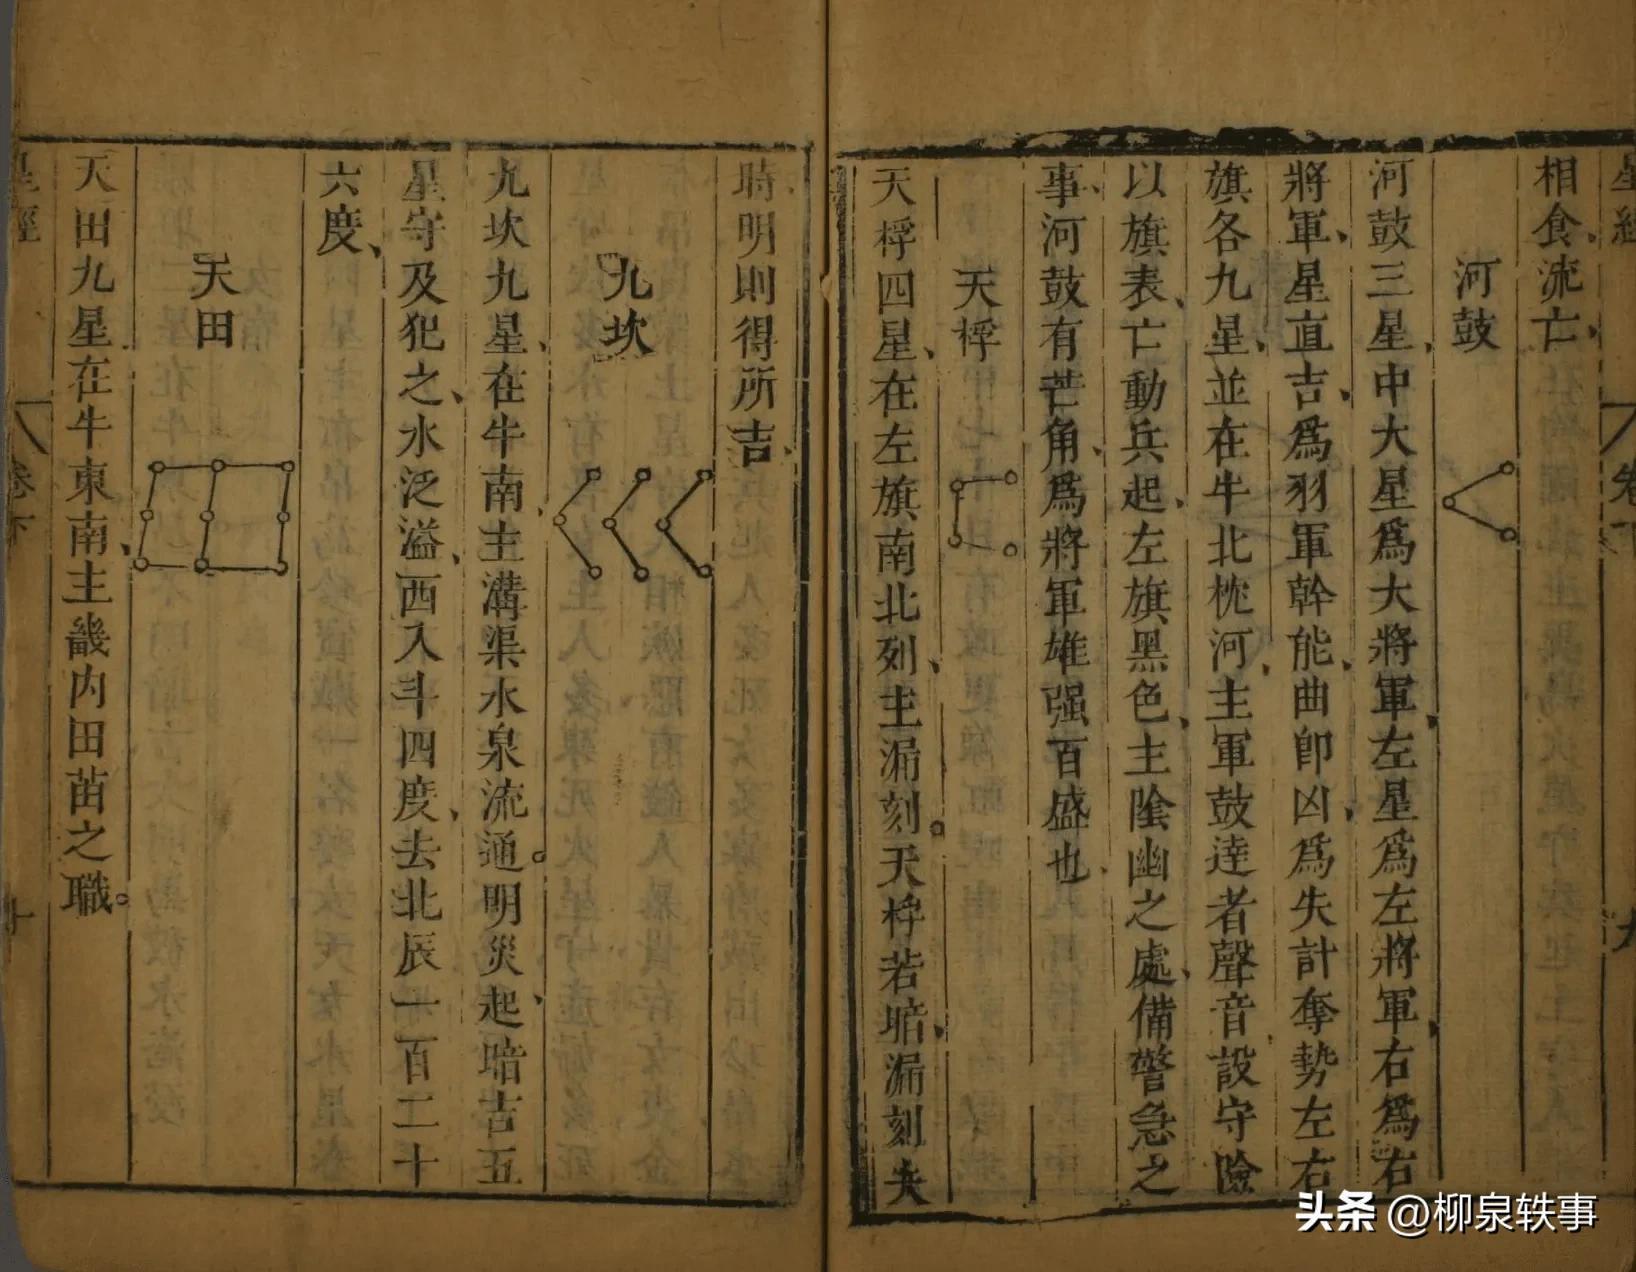 相食、流亡、
河鼓
河鼓三星、中大星爲大將軍、左星爲左將軍、右爲右
將軍、星直吉、爲羽軍幹能、曲卽凶、爲失計奪勢左右
旗各九星、並在牛北枕河、主軍鼓達者聲音、設守險
以旗表、亡動兵起、左旗黑色、主陰幽之處、備警急之
事、河鼓有芒角、爲將軍雄强百盛也、
天桴
天桴四星、在左旗南北列、主漏刻。天桴若暗、漏刻失
時、明則得所吉、
九坎
九坎九星、在牛南、主溝渠水泉流通。明災起、暗吉五
星守及犯之、水泛溢、西入斗四度、去北辰一百二十
六度、
天田
天田九星在牛東南、主畿内田苗之職。
星經
卷下
九
星經
卷下
十
头条 @柳泉轶事